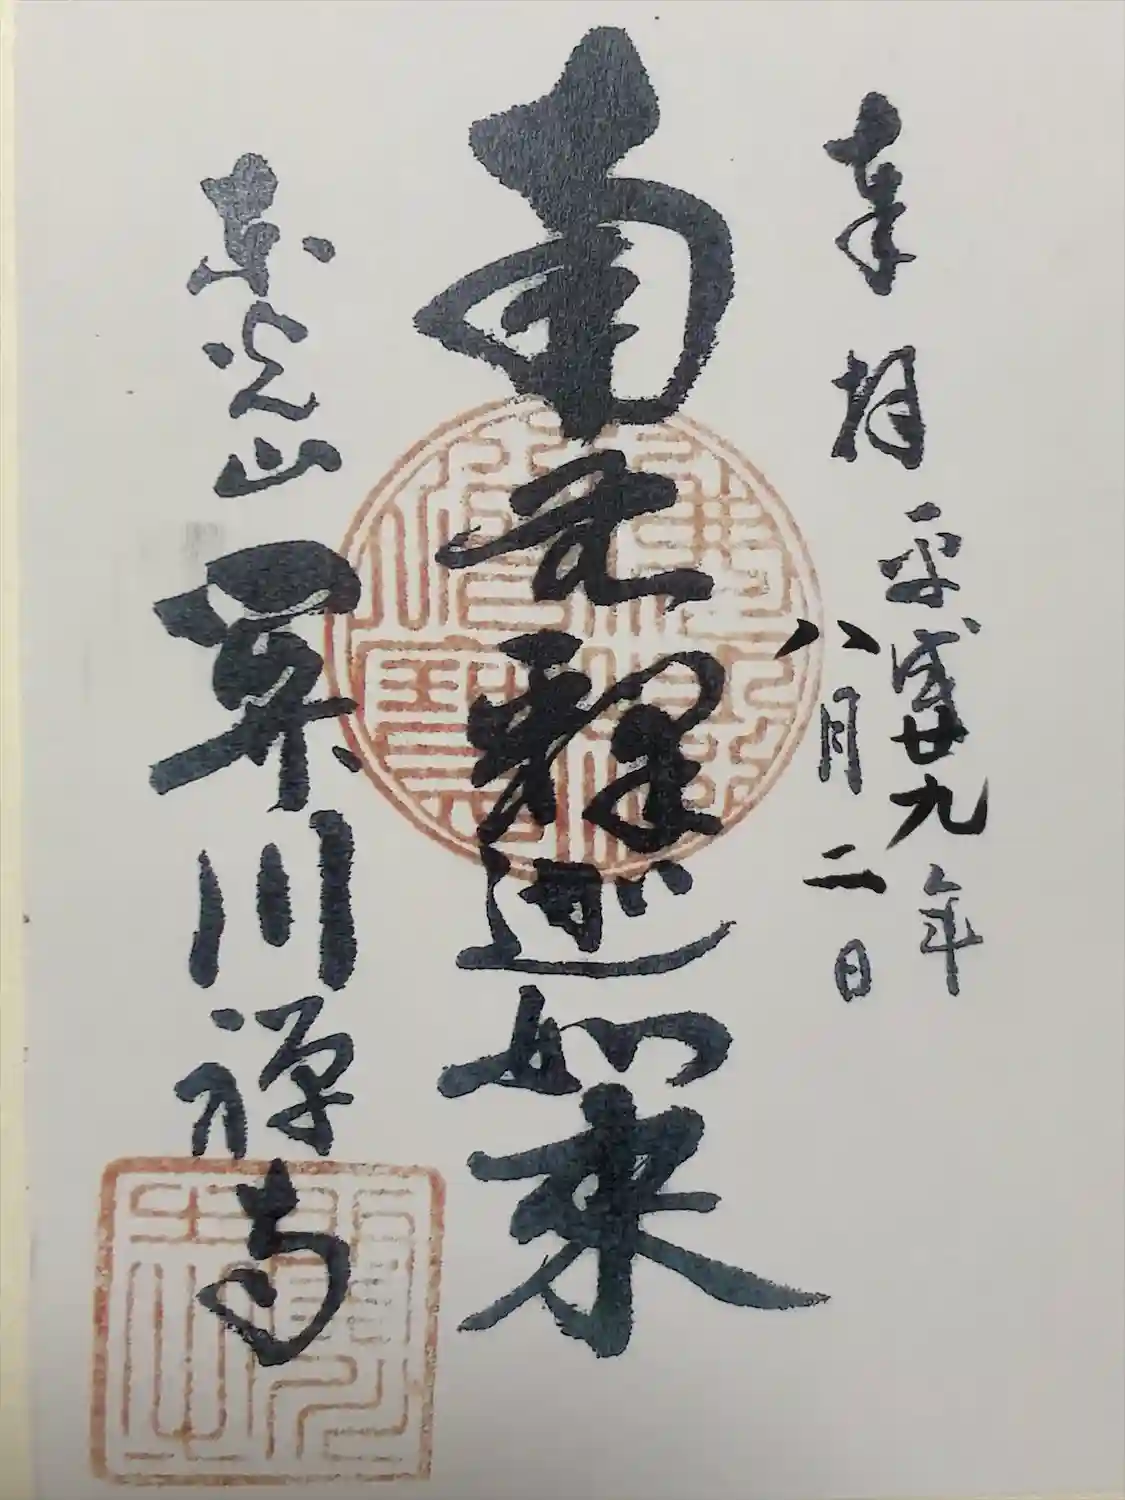 奉拝
平成廿九年
八月二日
南无釋迦如来
東光山
川禅寺